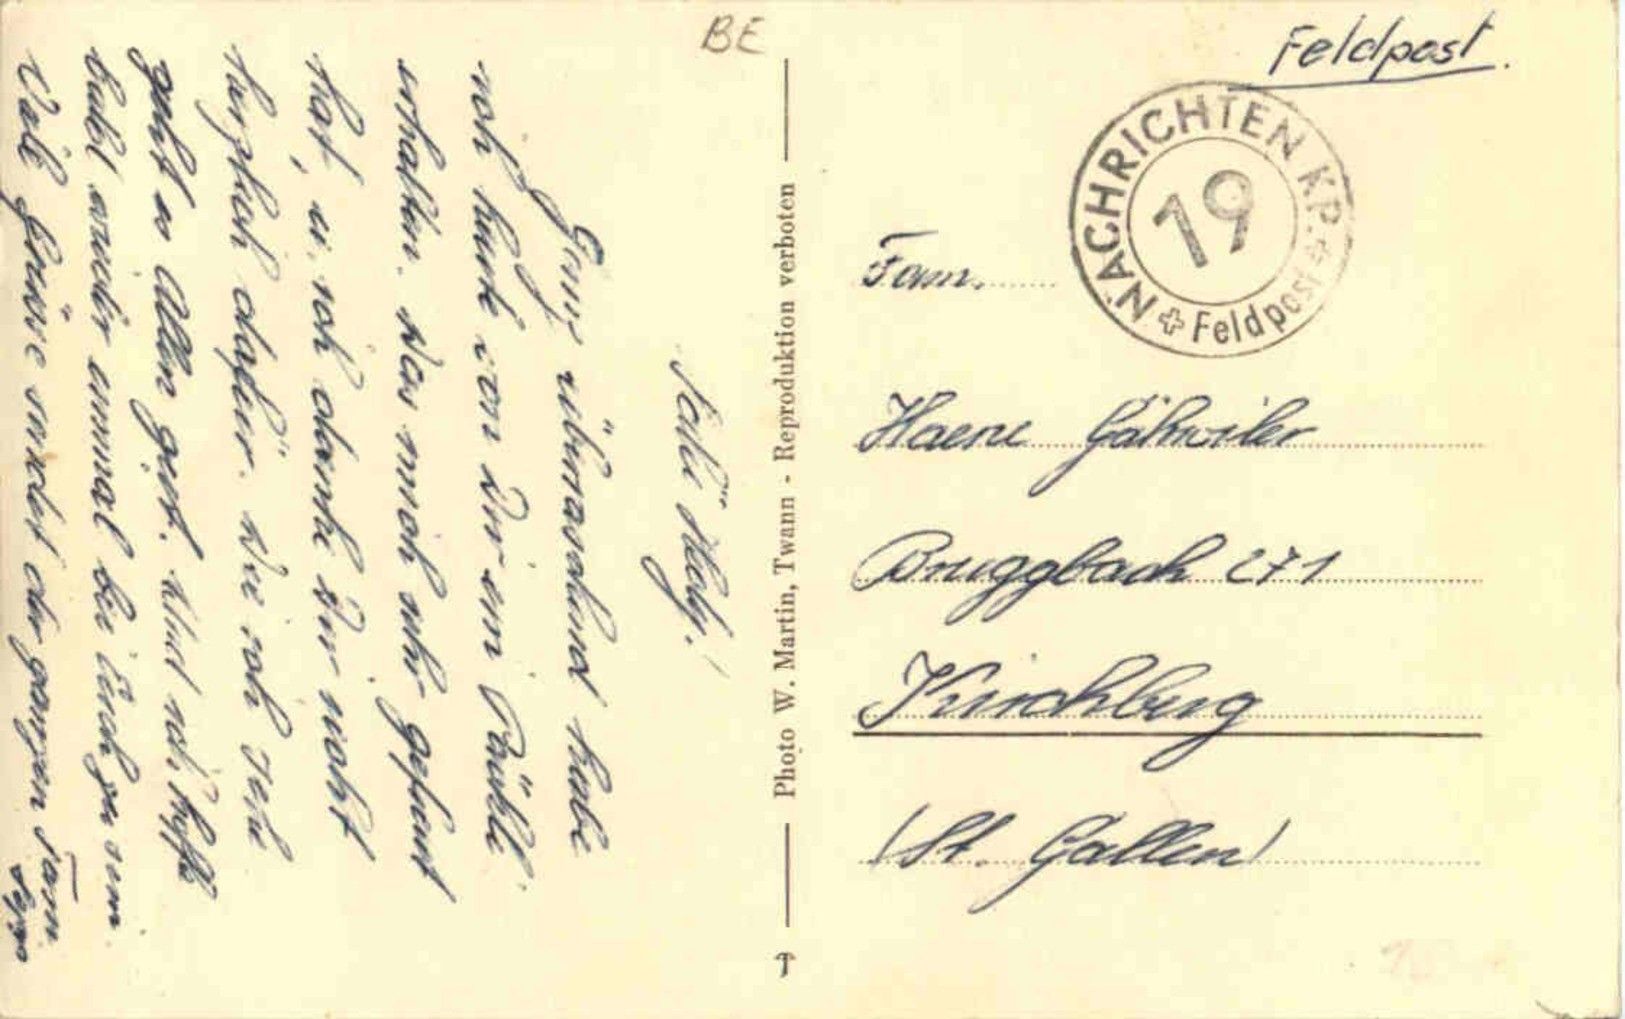 BE
Feldpost.
NACHRICHTEN KP.
19
Feldpost
Fam.
Haene Gähwiler
Bruggbach 271
Kirchberg
(St. Gallen)
Photo W. Martin, Twann - Reproduktion verboten
Ganz überraschend habe
ich heute von Dir ein Päckli
erhalten. Das mich sehr gefreut
hat, u. ich danke Dir recht
herzlich dafür. Wie ich sehe
geht es Allen gut. Und ich hoffe
bald wieder einmal bei Euch zu sein.
Viele Grüsse sendet der ganzen Fam.